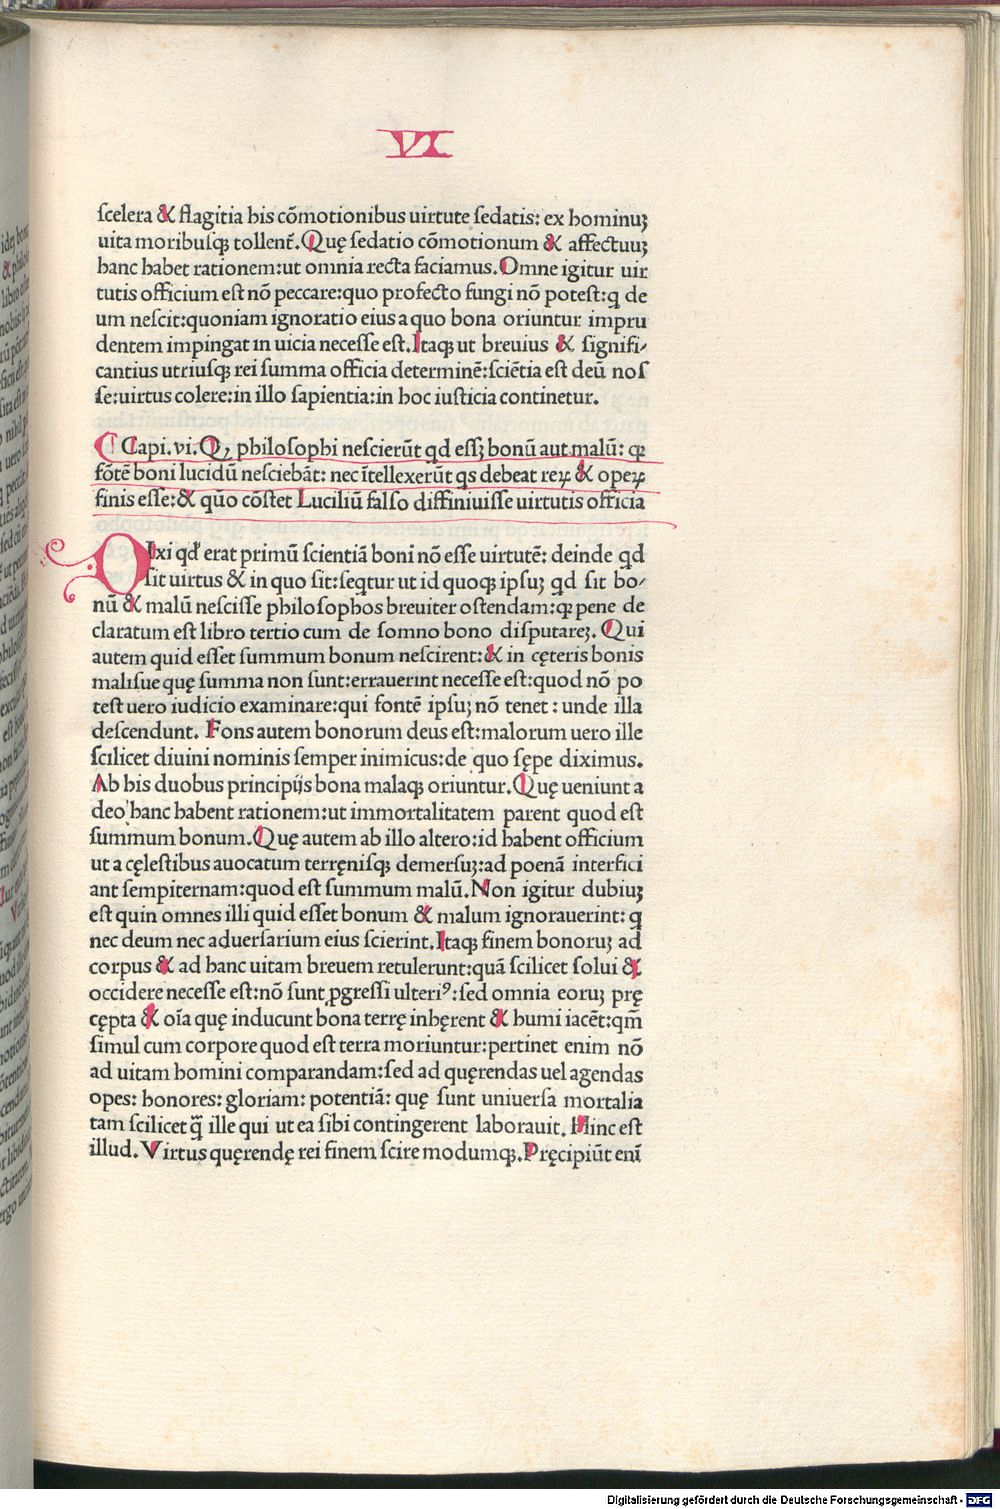 VI
scelera & flagitia his cõmotionibus uirtute sedatis: ex hominuꝫ
uita moribusqꝫ tollent̃. Quę sedatio cõmotionum & affectuuꝫ
hanc habet rationem:ut omnia recta faciamus. Omne igitur uir
tutis officium est nõ peccare:quo profecto fungi nõ potest:q de
um nescit:quoniam ignoratio eius a quo bona oriuntur impru
dentem impingat in uicia necesse est. Itaqꝫ ut breuius & signifi-
cantius utriusqꝫ rei summa officia determinẽ:sciẽtia est deũ nos
se:uirtus colere:in illo sapientia:in hoc iusticia continetur.
Capi. vi. Qꝫ philosophi nescierũt qd essꝫ bonũ aut malũ: qꝫ
fõtẽ boni lucidũ nesciebãt: nec ĩtellexerũt qs debeat reꝝ & opeꝝ
finis esse:& qũo cõstet Luciliũ falso diffiniuisse uirtutis officia
Dixi qd erat primũ scientiã boni nõ esse uirtutẽ: deinde qd
sit uirtus & in quo sit:seqtur ut id quoqꝫ ipsuꝫ qd sit bo-
nũ & malũ nescisse philosophos breuiter ostendam:qꝫ pene de
claratum est libro tertio cum de somno bono disputareꝫ. Qui
autem quid esset summum bonum nescirent:& in cęteris bonis
malisue quę summa non sunt:errauerint necesse est:quod nõ po
test uero iudicio examinare:qui fontẽ ipsuꝫ nõ tenet : unde illa
descendunt. Fons autem bonorum deus est:malorum uero ille
scilicet diuini nominis semper inimicus:de quo sępe diximus.
Ab his duobus principijs bona malaqꝫ oriuntur. Quę ueniunt a
deo hanc habent rationem:ut immortalitatem parent quod est
summum bonum. Quę autem ab illo altero:id habent officium
ut a cęlestibus auocatum terręnisqꝫ demersuꝫ:ad poenã interfici
ant sempiternam:quod est summum malũ. Non igitur dubiuꝫ
est quin omnes illi quid esset bonum & malum ignorauerint: q
nec deum nec aduersarium eius scierint. Itaqꝫ finem bonoruꝫ ad
corpus & ad hanc uitam breuem retulerunt:quã scilicet solui &
occidere necesse est:nõ sunt ꝓgressi ulteriꝰ:sed omnia eoruꝫ prę
cępta & oĩa quę inducunt bona terrę inhęrent & humi iacẽt:qm̃
simul cum corpore quod est terra moriuntur:pertinet enim nõ
ad uitam homini comparandam:sed ad quęrendas uel agendas
opes: honores: gloriam: potentiã: quę sunt uniuersa mortalia
tam scilicet q̃ ille qui ut ea sibi contingerent laborauit. Hinc est
illud. Virtus quęrendę rei finem scire modumqꝫ. Pręcipiũt enĩ
Digitalisierung gefördert durch die Deutsche Forschungsgemeinschaft - DFG